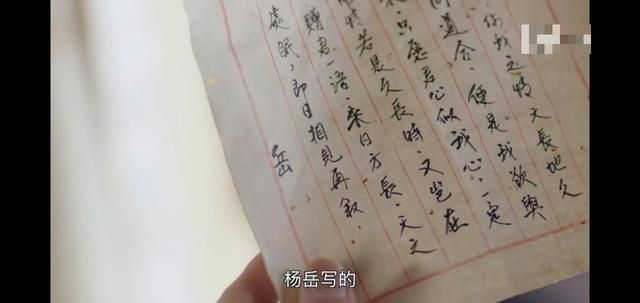 我之情天長地久
道合，便是我欲與
只愿君心似我心，一定
情若是久長時，又豈在
贈君一语，來日方長，天之
處眠，即日相見再敘，
岳
杨岳写的